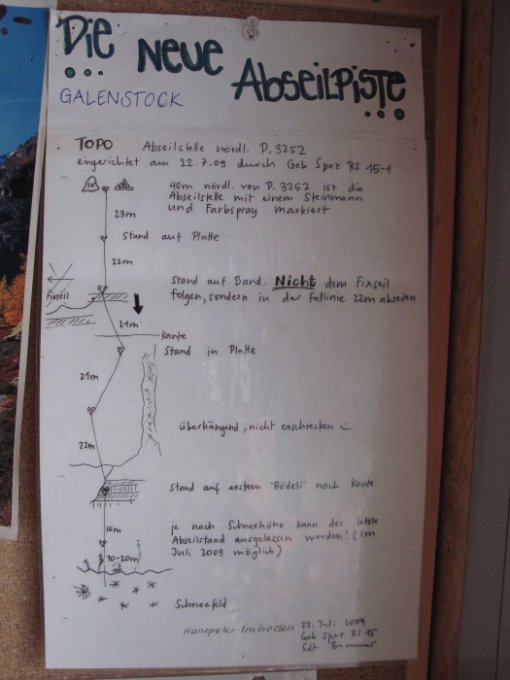 Die Neue
Abseilpiste
GALENSTOCK
TOPO Abseilstelle nördl. P. 3252
eingerichtet am 22.7.09 durch Geb Spez RS 15-1
40m nördl. von P. 3252 ist die
Abseilstelle mit einem Steinmann
und Farbspray markiert
23m
Stand auf Platte
22m
Stand auf Band. Nicht dem Fixseil
folgen, sondern in der Fallinie 22m abseilen
Fixseil
21m
Kante
Stand in Platte
21m
überhängend, nicht erschrecken
22m
Stand auf erstem "Bödeli" nach Kante
16m
je nach Schneehöhe kann der letzte
Abseilstand ausgelassen werden! (im
Juli 2009 möglich)
10-20m
Schneefeld
Hanspeter Imboden
22. Juli 2009
Geb Spez RS 15
Sdt Brunner